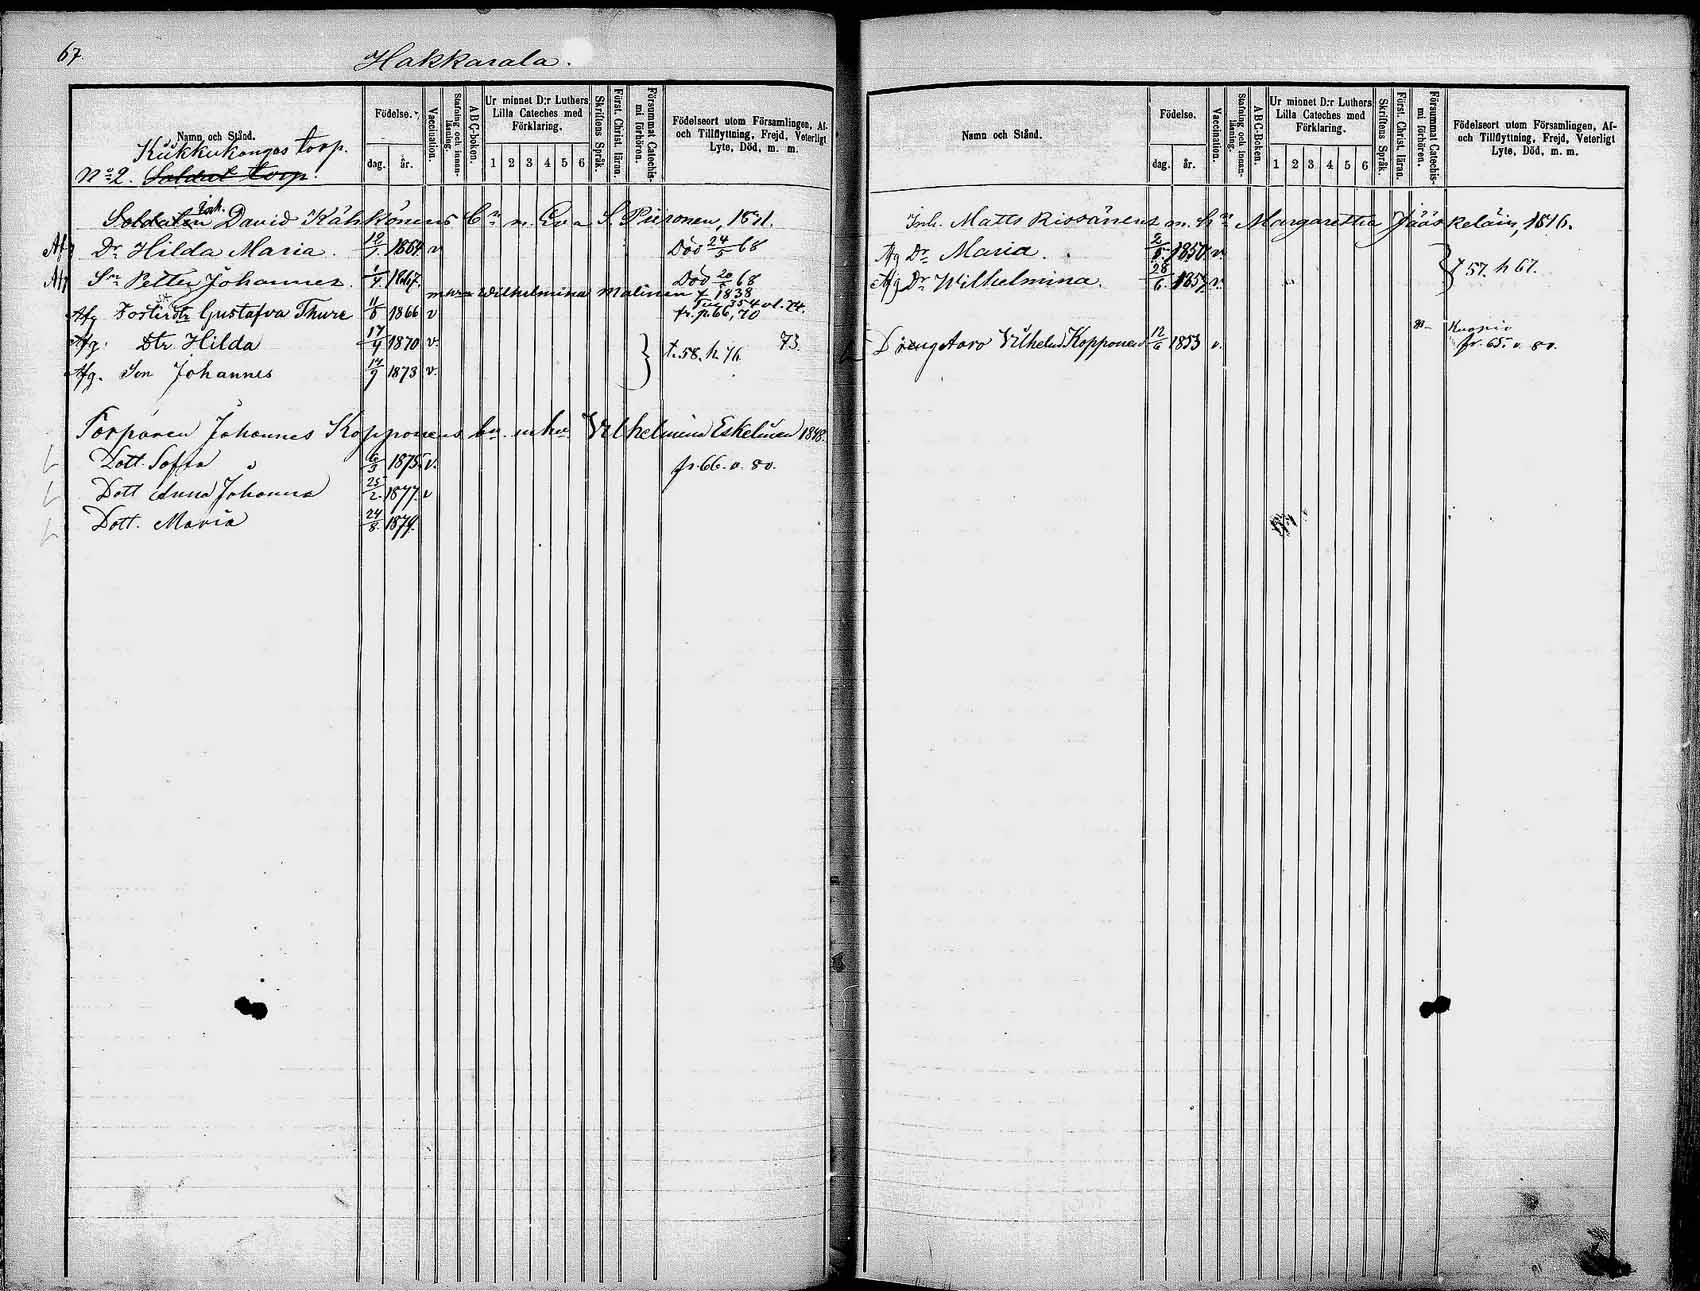 67
Hakkarala.
Namn och Stånd.
Födelse.
dag. år.
Vaccination.
Stafning och innan-läsning.
A B C-boken.
Ur minnet D:r Luthers Lilla Cateches med Förklaring.
1 2 3 4 5 6
Skriftens Språk.
Först. Christ. läran.
Försummat Catechis-mi förhören.
Födelseort utom Församlingen, Af- och Tillflyttning, Frejd, Veterligt Lyte, Död, m. m.
Kukkukangas torp.
No 2. Soldat torp.
Soldaten David Kähkönens bn m. Eva S. Piironen, 1871.
Afg Dr Hilda Maria. 1864 v Död 24/5 68
Afg Sn Petter Johannes. 1867. Död 20/5 68
m hu Wilhelmina Malinen f 1838
Afg Gustafva Thure 11/8 1866 v fr. p. 66, 70
Afg. Dtr Hilda 17/9 1870 v. 73
t. 58. h 76.
Afg. Son Johannes 1873 v.
Torparen Johannes Kopponens bn. m hu. Vilhelmina Eskelinen 1848.
Dott. Sofia 6/3 1875 v. fr. 66. v. 80.
Dott Anna Johanna 25/2 1877. v
Dott. Maria 24/8 1879.
Namn och Stånd.
Födelse.
dag. år.
Vaccination.
Stafning och innan-läsning.
A B C-Boken.
Ur minnet D:r Luthers Lilla Cateches med Förklaring.
1 2 3 4 5 6
Skriftens Språk.
Först. Christ. läran.
Försummat Catechis-mi förhören.
Födelseort utom Församlingen, Af- och Tillflyttning, Frejd, Veterligt Lyte, Död, m. m.
Inh. Matts Rissanens m. hu Margaretha Jääskeläin, 1816.
Afg Dr Maria. 1850 v.
t 57. h 67.
Afg Dr Wilhelmina. 28/6 1857 v.
Kuopio
Dräng Aaro Vilhelm Kopponen 12/6 1853 v. fr. 65. v. 80.